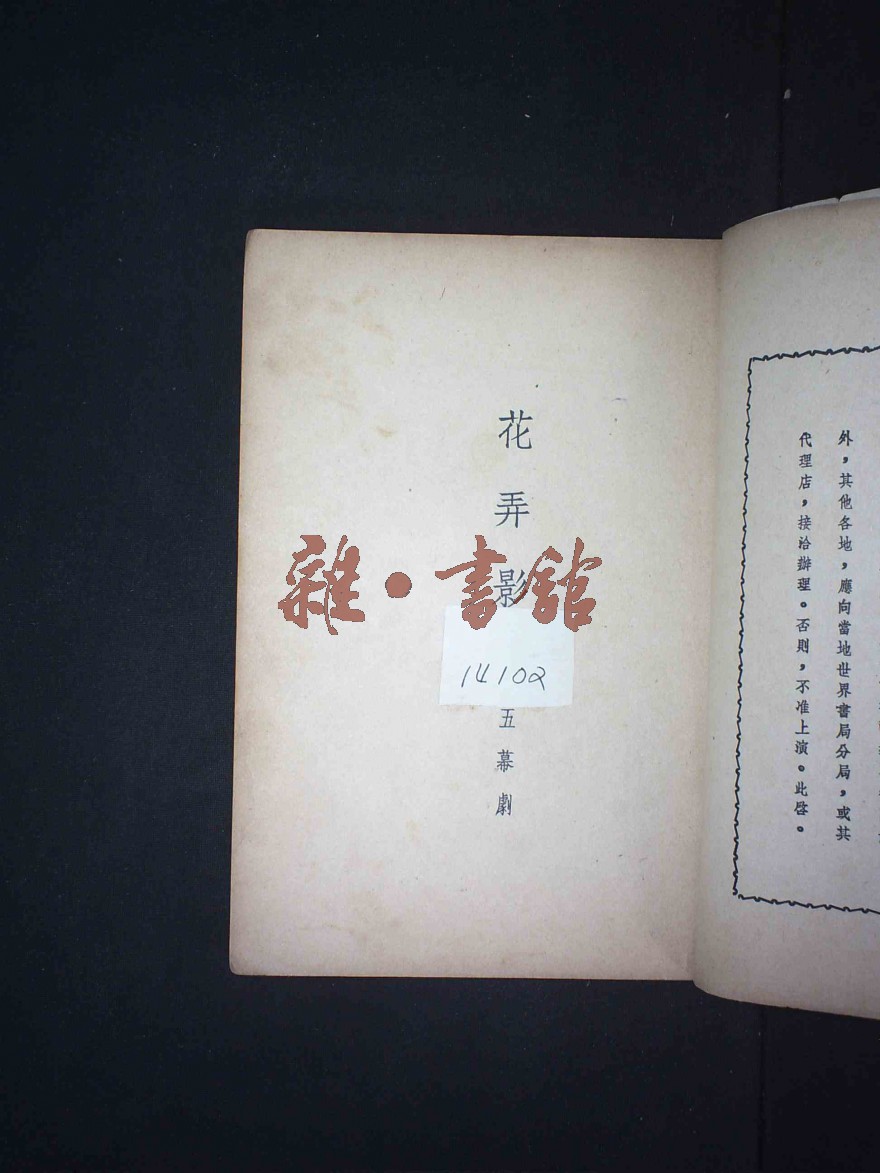 外，其他各地，應向當地世界書局分局，或其
代理店，接洽辦理。否則，不准上演。此啓。
花弄影
五幕劇
雜·書館
14102